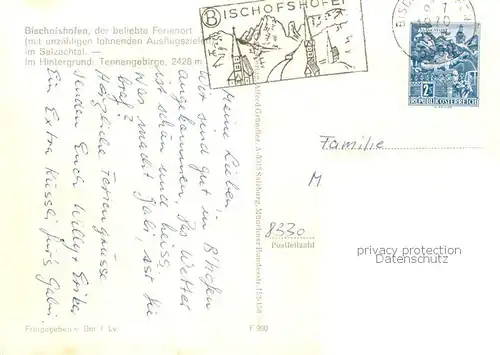 Bischofshofen, der beliebte Ferienort
(mit unzähligen lohnenden Ausflugszielen)
im Salzachtal. —
im Hintergrund: Tennengebirge, 2428 m
BISCHOFSHOFEN
2 S
REPUBLIK ÖSTERREICH
Meine Lieben,
Wir sind gut in B'hofen
angekommen, das Wetter
ist schön und heiss.
Was macht Gabi, ist sie
brav?
Herzliche Feriengrüsse
senden Euch Willy + Erika,
Ein Extra Küssli für's Gabi.
Alfred Gründler, A-5015 Salzburg, Münchner Bundesstr. 156-158
Familie
M
8330
Postleitzahl
privacy protection
Freigegeben v. BM f. Lv.
F 900